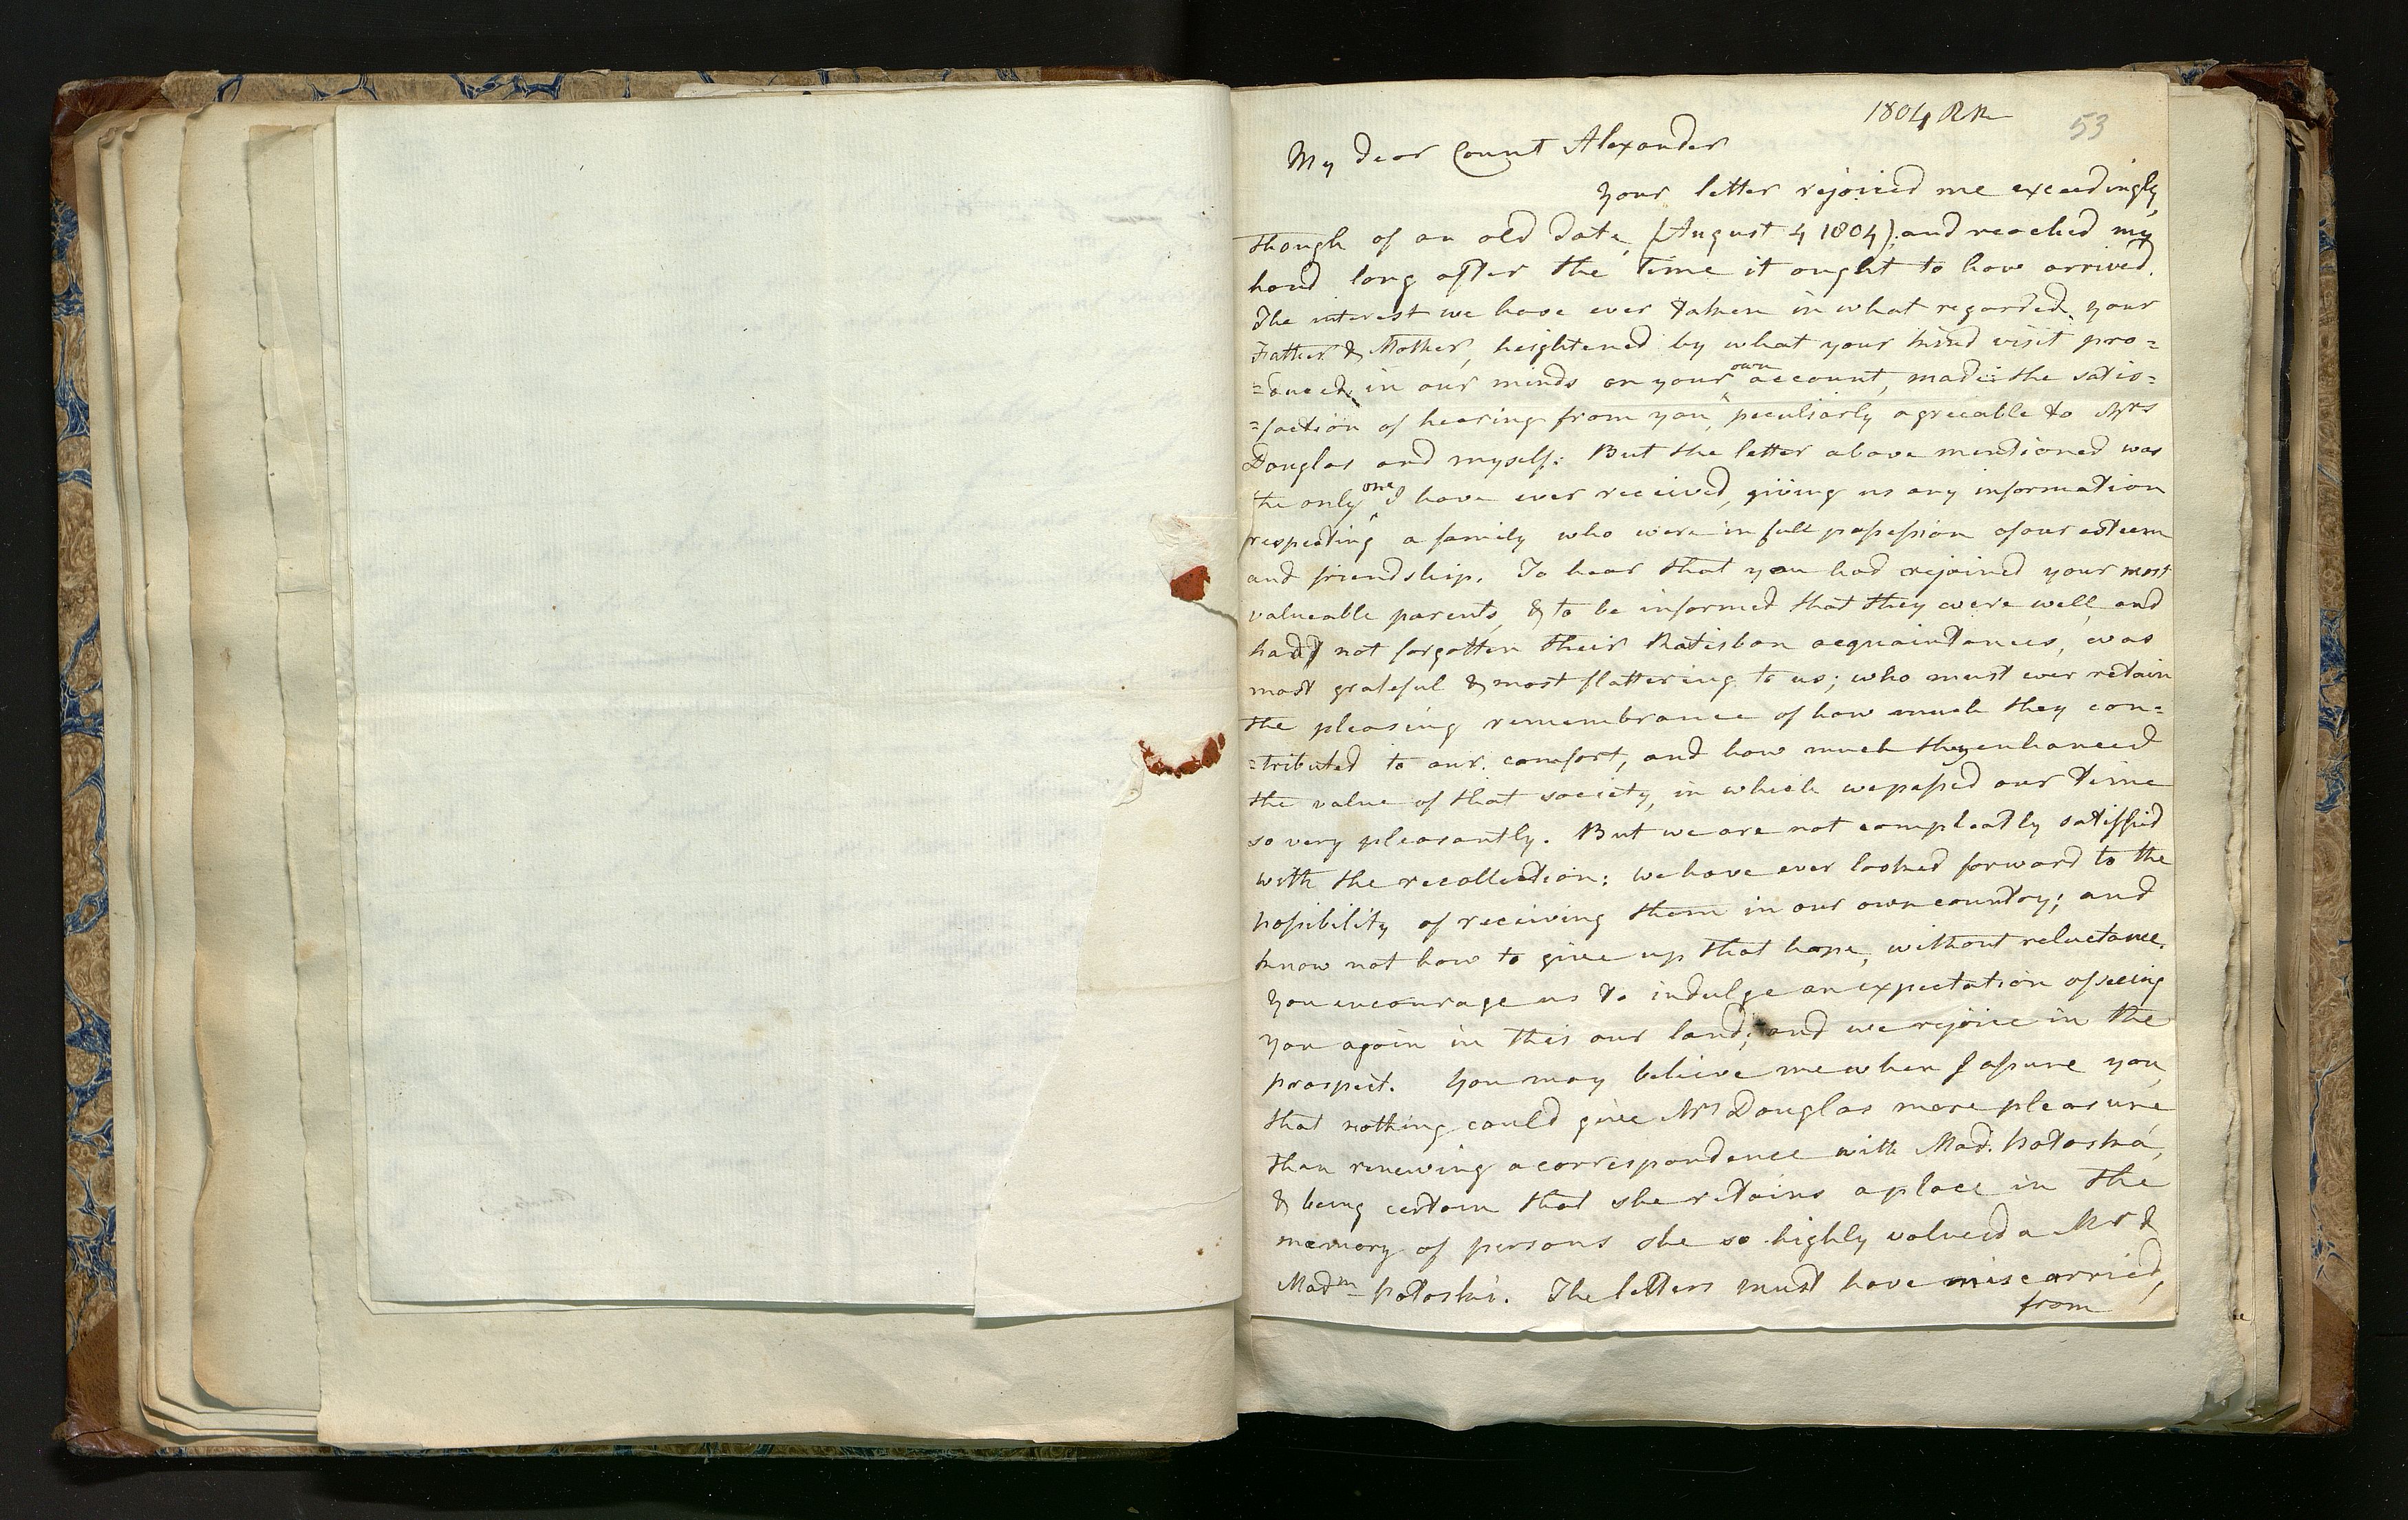 1804 RR
53
My dear Count Alexander
Your letter rejoiced me exceedingly,
though of an old date, (August 4 1804), and reached my
hand long after the time it ought to have arrived.
The interest we have ever taken in what regarded your
Father & Mother, heightened by what your kind visit pro=
=duced in our minds on your own account, made the satis=
=faction of hearing from you, peculiarly agreeable to Mrs
Douglas and myself: But the letter above mentioned was
the only one I have ever received, giving us any information
respecting a family who were in full possession of our esteem
and friendship. To hear that you had rejoined your most
valueable parents, & to be informed that they were well, and
had not forgotten their Ratisbon acquaintances, was
most grateful & most flattering to us; who must ever retain
the pleasing remembrance of how much they con=
=tributed to our comfort, and how much they enhanced
the value of that society, in which we passed our time
so very pleasantly. But we are not compleatly satisfied
with the recollection: we have ever looked forward to the
possibility of receiving them in our own country; and
know not how to give up that hope, without reluctance.
You encourage us to indulge an expectation of seeing
you again in this our land; and we rejoice in the
prospect. You may believe me when I assure you,
that nothing could give Mrs Douglas more pleasure,
than renewing a correspondence with Mad. Potoska,
& being certain that she retains a place in the
memory of persons she so highly valued a Mr &
Madm Potoski. The letters must have miscarried,
from